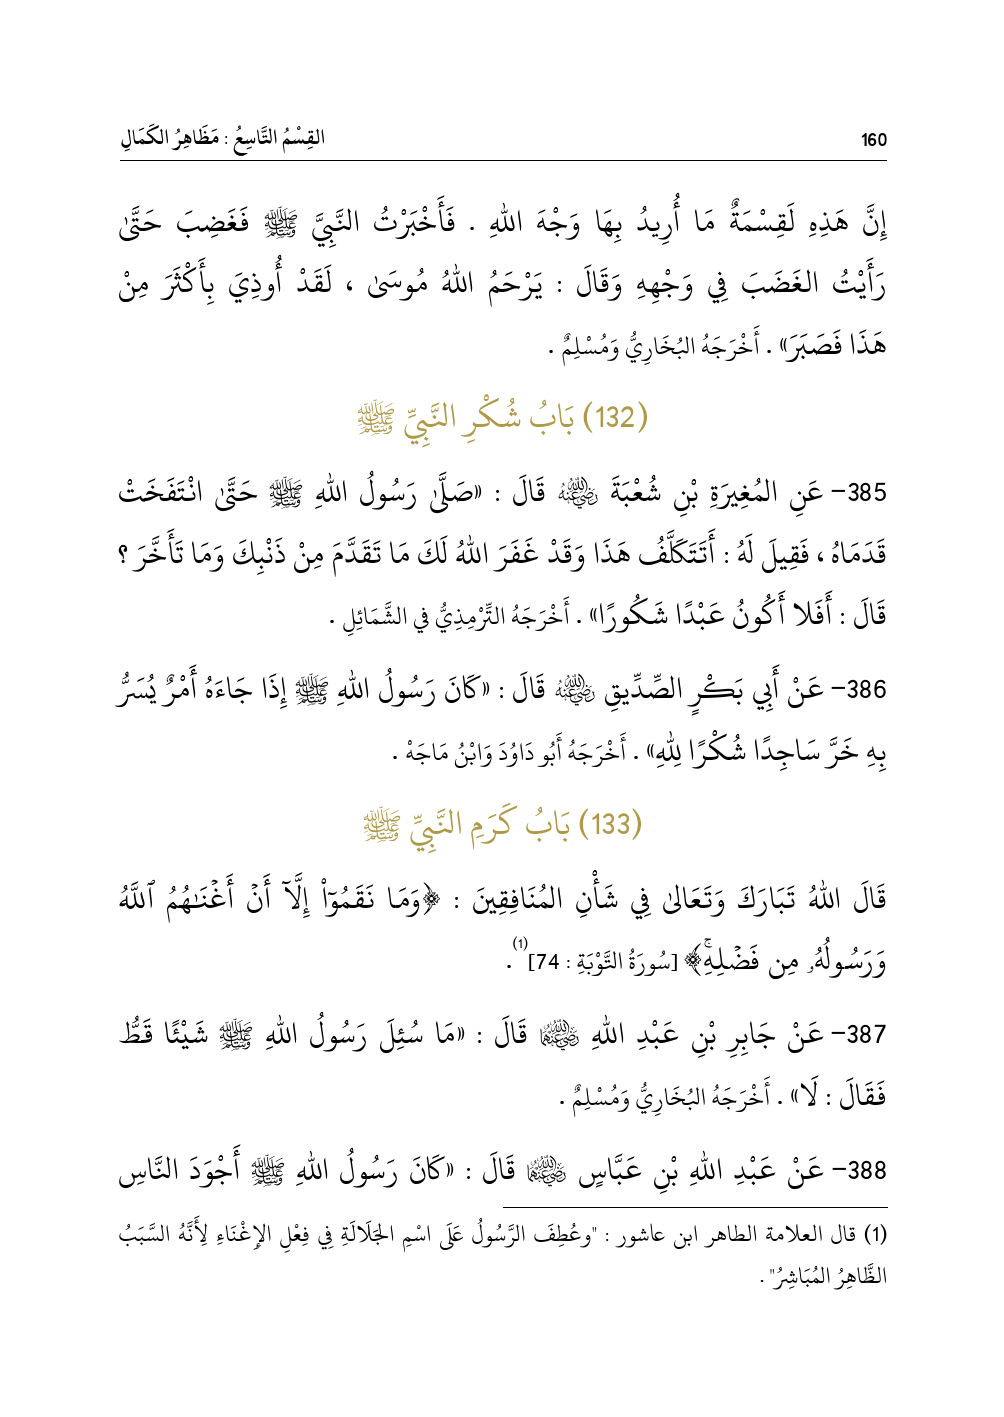 160
القِسْمُ التَّاسِعُ : مَظَاهِرُ الكَمَالِ
إِنَّ هَذِهِ لَقِسْمَةٌ مَا أُرِيدُ بِهَا وَجْهَ اللهِ . فَأَخْبَرْتُ النَّبِيَّ ﷺ فَغَضِبَ حَتَّىٰ
رَأَيْتُ الغَضَبَ فِي وَجْهِهِ وَقَالَ : يَرْحَمُ اللهُ مُوسَىٰ ، لَقَدْ أُوذِيَ بِأَكْثَرَ مِنْ
هَذَا فَصَبَرَ» . أَخْرَجَهُ البُخَارِيُّ وَمُسْلِمٌ .
(132) بَابُ شُكْرِ النَّبِيِّ ﷺ
385- عَنِ المُغِيرَةِ بْنِ شُعْبَةَ رَضِيَ اللهُ عَنْهُ قَالَ : «صَلَّىٰ رَسُولُ اللهِ ﷺ حَتَّىٰ انْتَفَخَتْ
قَدَمَاهُ ، فَقِيلَ لَهُ : أَتَتَكَلَّفُ هَذَا وَقَدْ غَفَرَ اللهُ لَكَ مَا تَقَدَّمَ مِنْ ذَنْبِكَ وَمَا تَأَخَّرَ ؟
قَالَ : أَفَلا أَكُونُ عَبْدًا شَكُورًا» . أَخْرَجَهُ التِّرْمِذِيُّ في الشَّمَائِلِ .
386- عَنْ أَبِي بَكْرٍ الصِّدِّيقِ رَضِيَ اللهُ عَنْهُ قَالَ : «كَانَ رَسُولُ اللهِ ﷺ إِذَا جَاءَهُ أَمْرٌ يُسَرُّ
بِهِ خَرَّ سَاجِدًا شُكْرًا لِلهِ» . أَخْرَجَهُ أَبُو دَاوُدَ وَابْنُ مَاجَهْ .
(133) بَابُ كَرَمِ النَّبِيِّ ﷺ
قَالَ اللهُ تَبَارَكَ وَتَعَالىٰ فِي شَأْنِ المُنَافِقِينَ : ﴿وَمَا نَقَمُوٓاْ إِلَّآ أَنْ أَغْنَىٰهُمُ ٱللَّهُ
وَرَسُولُهُۥ مِن فَضْلِهِۦۚ﴾ [سُورَةُ التَّوْبَةِ : 74]⁽¹⁾ .
387- عَنْ جَابِرِ بْنِ عَبْدِ اللهِ رَضِيَ اللهُ عَنْهُمَا قَالَ : «مَا سُئِلَ رَسُولُ اللهِ ﷺ شَيْئًا قَطُّ
فَقَالَ : لَا» . أَخْرَجَهُ البُخَارِيُّ وَمُسْلِمٌ .
388- عَنْ عَبْدِ اللهِ بْنِ عَبَّاسٍ رَضِيَ اللهُ عَنْهُمَا قَالَ : «كَانَ رَسُولُ اللهِ ﷺ أَجْوَدَ النَّاسِ
(1) قال العلامة الطاهر ابن عاشور : "وعُطِفَ الرَّسُولُ عَلَى اسْمِ الجَلَالَةِ فِي فِعْلِ الإِغْنَاءِ لِأَنَّهُ السَّبَبُ
الظَّاهِرُ المُبَاشِرُ" .